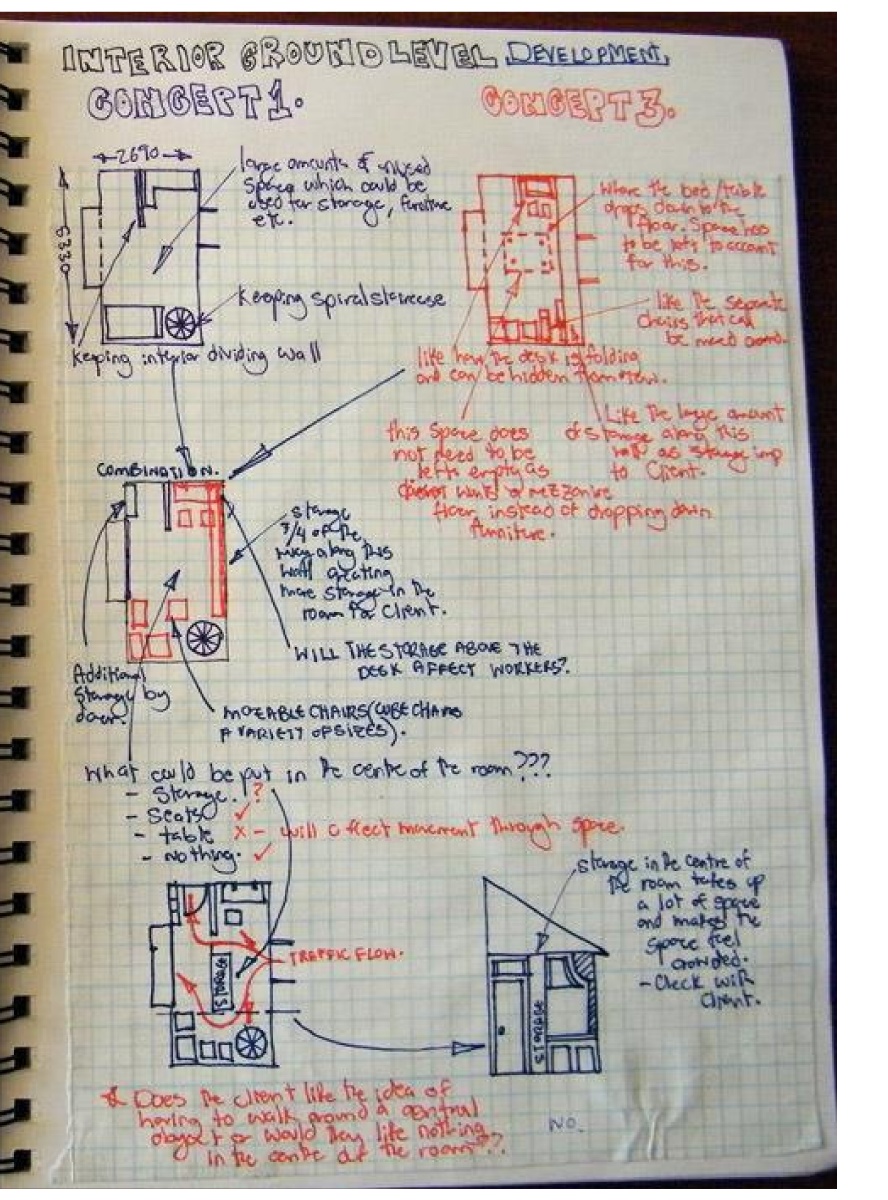 INTERIOR GROUND LEVEL DEVELOPMENT.
CONCEPT 1.
CONCEPT 3.
2690
5330
large amounts of unused
space which could be
used for storage, furniture
etc.
Keeping spiral staircase
Keeping interior dividing wall
Where the bed/table
drops down to the
floor. Space has
to be left to account
for this.
like the separate
chairs that can
be used
like how the desk is folding
and can be hidden from view.
this space does
not need to be
left empty as
client wants a mezzanine
floor instead of dropping down
furniture.
Like the large amount
of storage along this
wall as storage imp
to client.
COMBINATION.
storage
3/4 of the
way along this
wall creating
more storage in the
room for client.
WILL THE STORAGE ABOVE THE
DESK AFFECT WORKERS?
Additional
storage by
door.
MOVEABLE CHAIRS (CUBE CHAIRS
A VARIETY OF SIZES).
What could be put in the centre of the room???
- Storage. ?
- Seats ✓
- table X - will affect movement through space.
- nothing. ✓
storage in the centre of
the room takes up
a lot of space
and makes the
space feel
crowded.
- Check with
client.
TRAFFIC FLOW.
STORAGE
STORAGE
* Does the client like the idea of
having to walk around a central
object or would they like nothing
in the centre of the room??
NO.